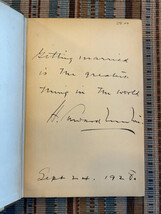 Getting married
is the greatest
thing in the world
H.
Sept 24. 1928.